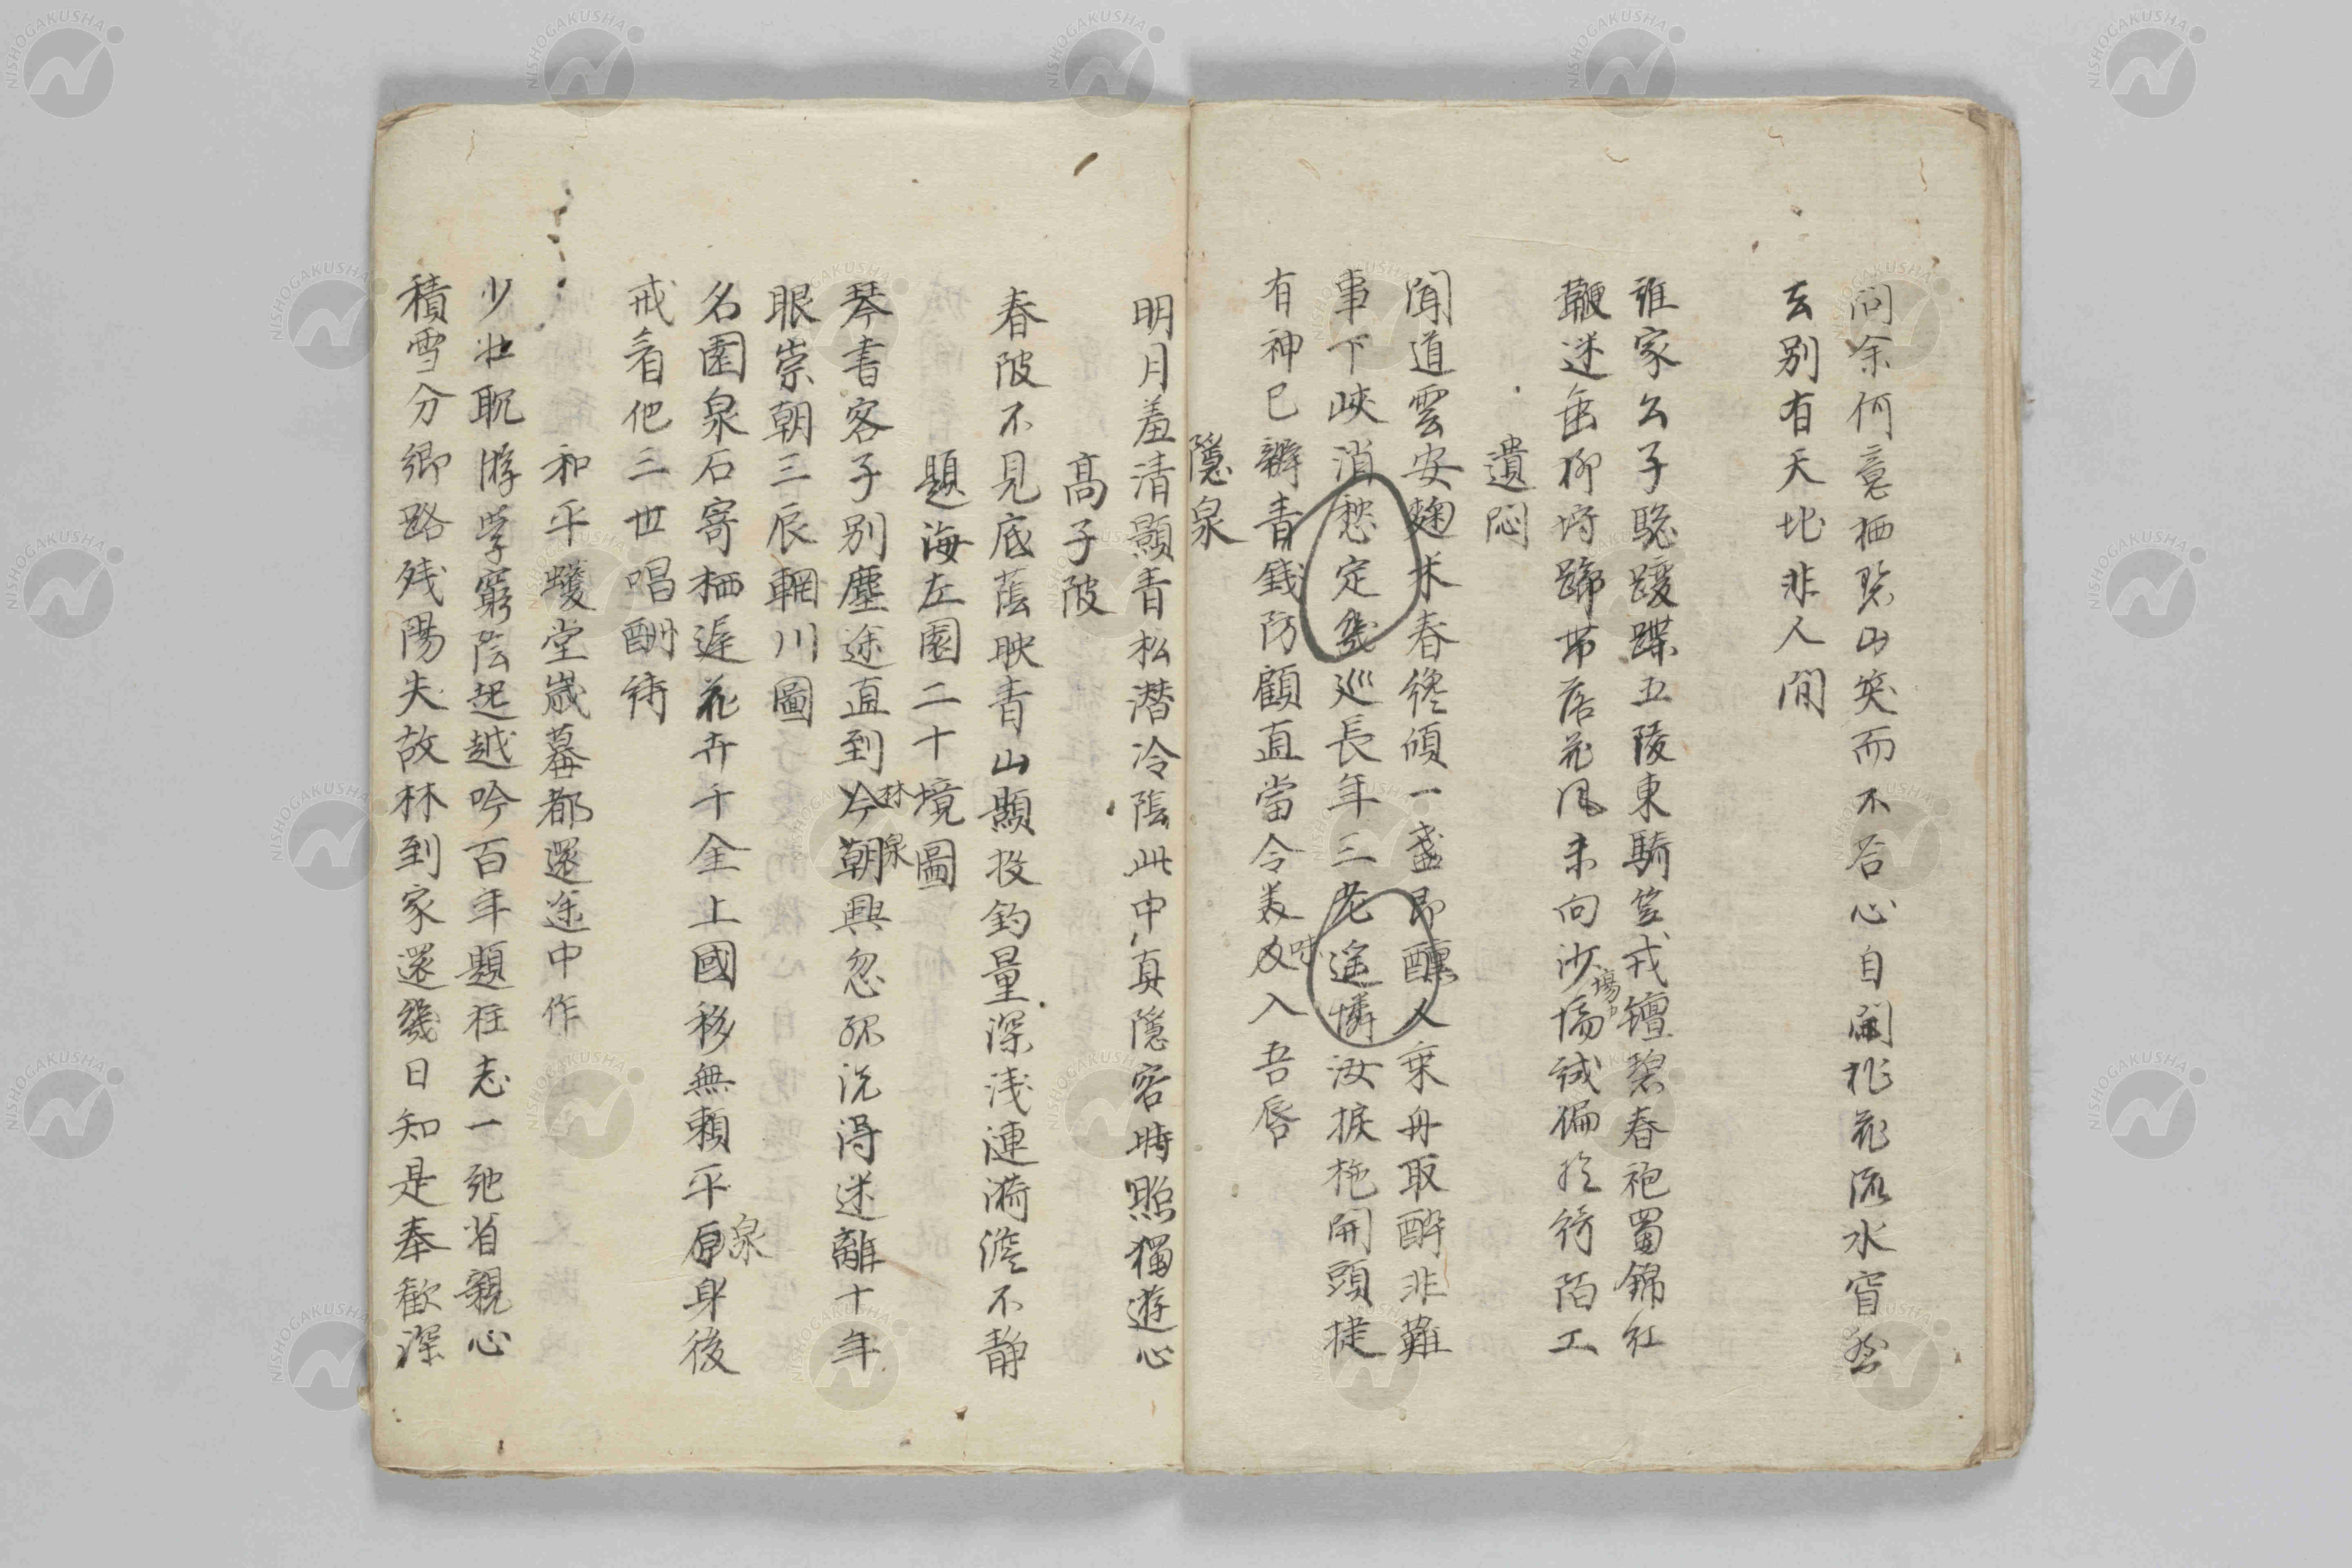 問余何意栖碧山笑而不答心自閑桃花流水窅然
去别有天地非人間
誰家公子驄躞蹀五陵東騎笠戎鑣碧春袍蜀錦紅
鞭迷垂柳埒蹄帯落花風未向沙塲試偏於綺陌工
場
遺悶
聞道雲安麹米春纔傾一盞即醺人乗舟取醉非難
事下峽消愁定幾巡長年三老遥憐汝捩柁開頭捷
有神已辦青銭防顧直當令美入吾唇
味
隠泉
明月羞清顯青松潜冷蔭此中真隠客時照獨遊心
髙子陂
春陂不見底蔭映青山顯投釣量深浅漣漪澹不静
題海左園二十境圖
琴書客子别塵途直到今朝興忽孤洗得迷離十年
林泉
眼崇朝三辰輞川圖
名園泉石寄栖遅花卉千金上國移無頼平原身後
泉
戒看他三世唱酬詩
和平雙堂嵗暮都還途中作
少壮耽游学窮陰起越吟百年題柱志一弛省親心
積雪分郷路残陽失故林到家還幾日知是奉歓深
NISHOGAKUSHA